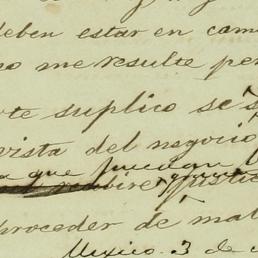 deben estar en cam
co me resulte per
te suplico se s
vista del negocio
a que puedan
recibir justic
proceder de mal
Mexico. 3 de